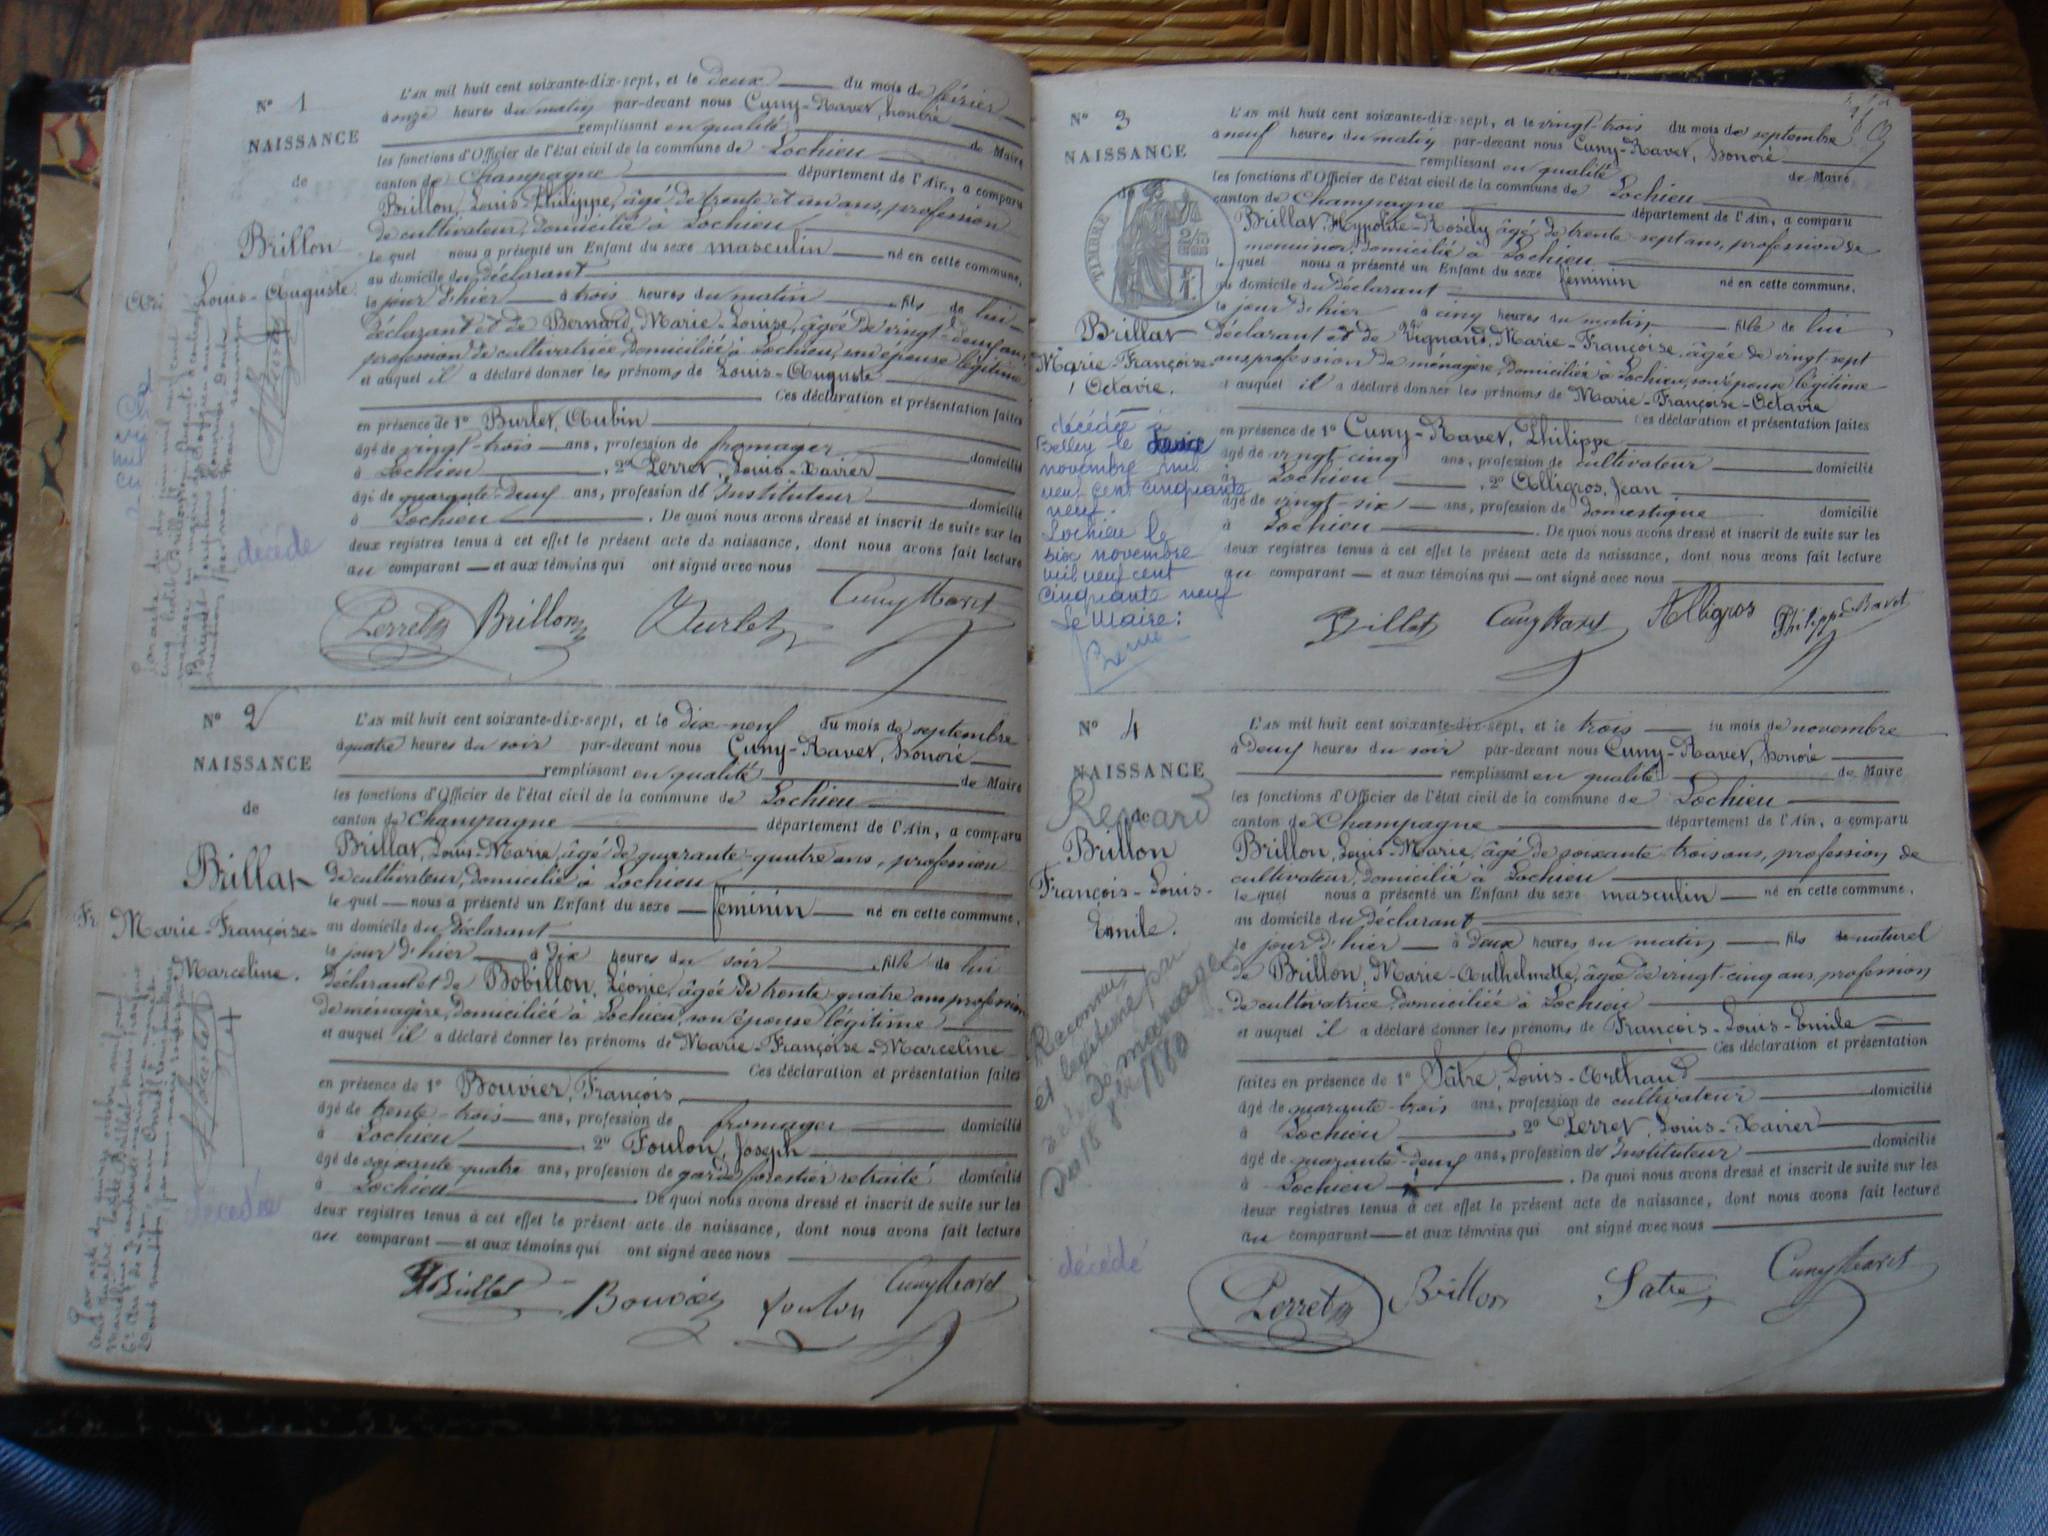 N° 1
NAISSANCE
de
Brillon
Louis-Auguste
décédé
L'AN mil huit cent soixante-dix-sept, et le deux du mois de février
à onze heures du matin par-devant nous Cuny-Ravet, honoré
remplissant en qualité de Maire
les fonctions d'Officier de l'état civil de la commune de Lochieu
canton de Champagne département de l'Ain, a comparu
Brillon, Louis-Philippe, âgé de trente et un ans, profession
de cultivateur, domicilié à Lochieu
le quel nous a présenté un Enfant du sexe masculin né en cette commune,
au domicile du déclarant
le jour d'hier à trois heures du matin fils de lui
déclarant et de Bernard, Marie-Louise, âgée de vingt-deux ans
profession de cultivatrice, domiciliée à Lochieu, son épouse légitime
et auquel il a déclaré donner les prénoms de Louis-Auguste
Ces déclaration et présentation faites
en présence de 1° Burlet, Aubin
âgé de vingt-trois ans, profession de fromager domicilié
à Lochieu, 2° Perret, Louis-Xavier
âgé de quarante-deux ans, profession de Instituteur domicilié
à Lochieu. De quoi nous avons dressé et inscrit de suite sur les
deux registres tenus à cet effet le présent acte de naissance, dont nous avons fait lecture
au comparant et aux témoins qui ont signé avec nous
Perret Brillon Burlet Cuny Ravet
N° 2
NAISSANCE
de
Brillat
Marie-Françoise-
Marceline.
décédée
L'AN mil huit cent soixante-dix-sept, et le dix-neuf du mois de septembre
à quatre heures du soir par-devant nous Cuny-Ravet, honoré
remplissant en qualité de Maire
les fonctions d'Officier de l'état civil de la commune de Lochieu
canton de Champagne département de l'Ain, a comparu
Brillat, Louis-Marie, âgé de quarante-quatre ans, profession
de cultivateur, domicilié à Lochieu
le quel nous a présenté un Enfant du sexe féminin né en cette commune,
au domicile du déclarant
le jour d'hier à dix heures du soir fille de lui
déclarant et de Bobillon, Léonie, âgée de trente-quatre ans profession
de ménagère, domiciliée à Lochieu, son épouse légitime
et auquel il a déclaré donner les prénoms de Marie-Françoise-Marceline
Ces déclaration et présentation faites
en présence de 1° Bouvier, François
âgé de trente-trois ans, profession de fromager domicilié
à Lochieu, 2° Foulon, Joseph
âgé de soixante-quatre ans, profession de garde forestier retraité domicilié
à Lochieu De quoi nous avons dressé et inscrit de suite sur les
deux registres tenus à cet effet le présent acte de naissance, dont nous avons fait lecture
au comparant et aux témoins qui ont signé avec nous
Brillat Bouvier foulon Cuny Ravet
N° 3
NAISSANCE
de
TIMBRE
Brillat
Marie-Françoise-
Octavie.
décédée à
Belley le
novembre mil
neuf cent cinquante
neuf.
Lochieu le
six novembre
mil neuf cent
cinquante neuf
Le Maire:
L'AN mil huit cent soixante-dix-sept, et le vingt-trois du mois de septembre
à neuf heures du matin par-devant nous Cuny-Ravet, honoré
remplissant en qualité de Maire
les fonctions d'Officier de l'état civil de la commune de Lochieu
canton de Champagne département de l'Ain, a comparu
Brillat, Hypolite-Rosély âgé de trente-sept ans, profession de
menuisier, domicilié à Lochieu
le quel nous a présenté un Enfant du sexe féminin né en cette commune,
au domicile du Déclarant
le jour d'hier à cinq heures du matin fille de lui
déclarant et de Vignand, Marie-Françoise, âgée de vingt-sept
ans profession de ménagère, domiciliée à Lochieu, son épouse légitime
et auquel il a déclaré donner les prénoms de Marie-Françoise-Octavie
Ces déclaration et présentation faites
en présence de 1° Cuny-Ravet, Philippe
âgé de vingt-cinq ans, profession de cultivateur domicilié
à Lochieu, 2° Alligros, Jean
âgé de vingt-six ans, profession de domestique domicilié
à Lochieu. De quoi nous avons dressé et inscrit de suite sur les
deux registres tenus à cet effet le présent acte de naissance, dont nous avons fait lecture
au comparant et aux témoins qui ont signé avec nous
Brillat Cuny Ravet Alligros Philippe Ravet
N° 4
NAISSANCE
de
Renard
Brillon
François-Louis-
Emile.
Reconnu
et légitimé par
acte de mariage
du 18 8bre 1880
décédé
L'AN mil huit cent soixante-dix-sept, et le trois du mois de novembre
à deux heures du soir par-devant nous Cuny-Ravet, honoré
remplissant en qualité de Maire
les fonctions d'Officier de l'état civil de la commune de Lochieu
canton de Champagne département de l'Ain, a comparu
Brillon, Louis-Marie, âgé de soixante-trois ans, profession de
cultivateur, domicilié à Lochieu
le quel nous a présenté un Enfant du sexe masculin né en cette commune,
au domicile du déclarant
le jour d'hier à deux heures du matin fils naturel
de Brillon, Marie-Anthelmette, âgée de vingt-cinq ans, profession
de cultivatrice, domiciliée à Lochieu
et auquel il a déclaré donner les prénoms de François-Louis-Emile
Ces déclaration et présentation
faites en présence de 1° Sâtre, Louis-Arthaud
âgé de quarante-trois ans, profession de cultivateur domicilié
à Lochieu, 2° Perret, Louis-Xavier
âgé de quarante-deux ans, profession de Instituteur domicilié
à Lochieu. De quoi nous avons dressé et inscrit de suite sur les
deux registres tenus à cet effet le présent acte de naissance, dont nous avons fait lecture
au comparant et aux témoins qui ont signé avec nous
Perret Brillon Satre Cuny Ravet